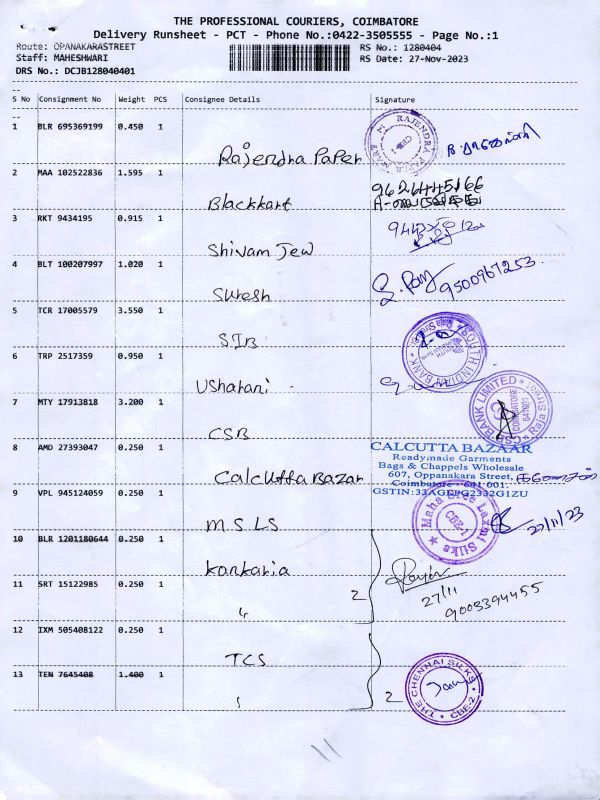 THE PROFESSIONAL COURIERS, COIMBATORE
Delivery Runsheet - PCT - Phone No.:0422-3505555 - Page No.:1
Route: OPANAKARASTREET
RS No.: 1280404
Staff: MAHESHWARI
RS Date: 27-Nov-2023
DRS No.: DCJB128040401
S No Consignment No Weight PCS Consignee Details Signature
1 BLR 695369199 0.450 1
Rajendra Paper
2 MAA 102522836 1.595 1
Blackkart
9626445166
3 RKT 9434195 0.915 1
Shivam Jew
4 BLT 100207997 1.020 1
Suresh
9500967253
5 TCR 17005579 3.550 1
SIB
SOUTH INDIAN BANK
6 TRP 2517359 0.950 1
Usharani
7 MTY 17913818 3.200 1
CSB
CSB BANK LIMITED
COIMBATORE
641001
8 AMD 27393047 0.250 1
Calcutta Bazar
CALCUTTA BAZAAR
Readymade Garments
Bags & Chappels Wholesale
607, Oppanakara Street,
Coimbatore - 641 001.
GSTIN:33AGEPG2332G1ZU
9 VPL 945124059 0.250 1
MSLS
Maha Sree Laxmi Silks
CBE-1
27/11/23
10 BLR 1201180644 0.250 1
Kankaria
11 SRT 15122985 0.250 1
"
2
27/11
9003394455
12 IXM 505408122 0.250 1
TCS
13 TEN 7645408 1.400 1
2
THE CHENNAI SILKS
CBE-2
11